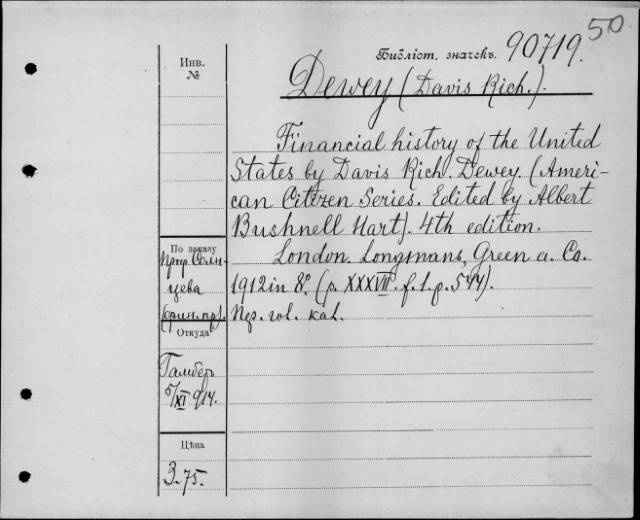 50
Библіот. значекъ. 90719.
Dewey (Davis Rich.).
Инв.
№
Financial history of the United
States by Davis Rich. Dewey. (Ameri-
can Citizen Series. Edited by Albert
Bushnell Hart). 4th edition.
London. Longmans, Green a. Co.
1912 in 8°. (p. XXXVII. f. 1. p. 544).
По заказу
цева
Откуда
XI 914.
Цѣна
3.75.